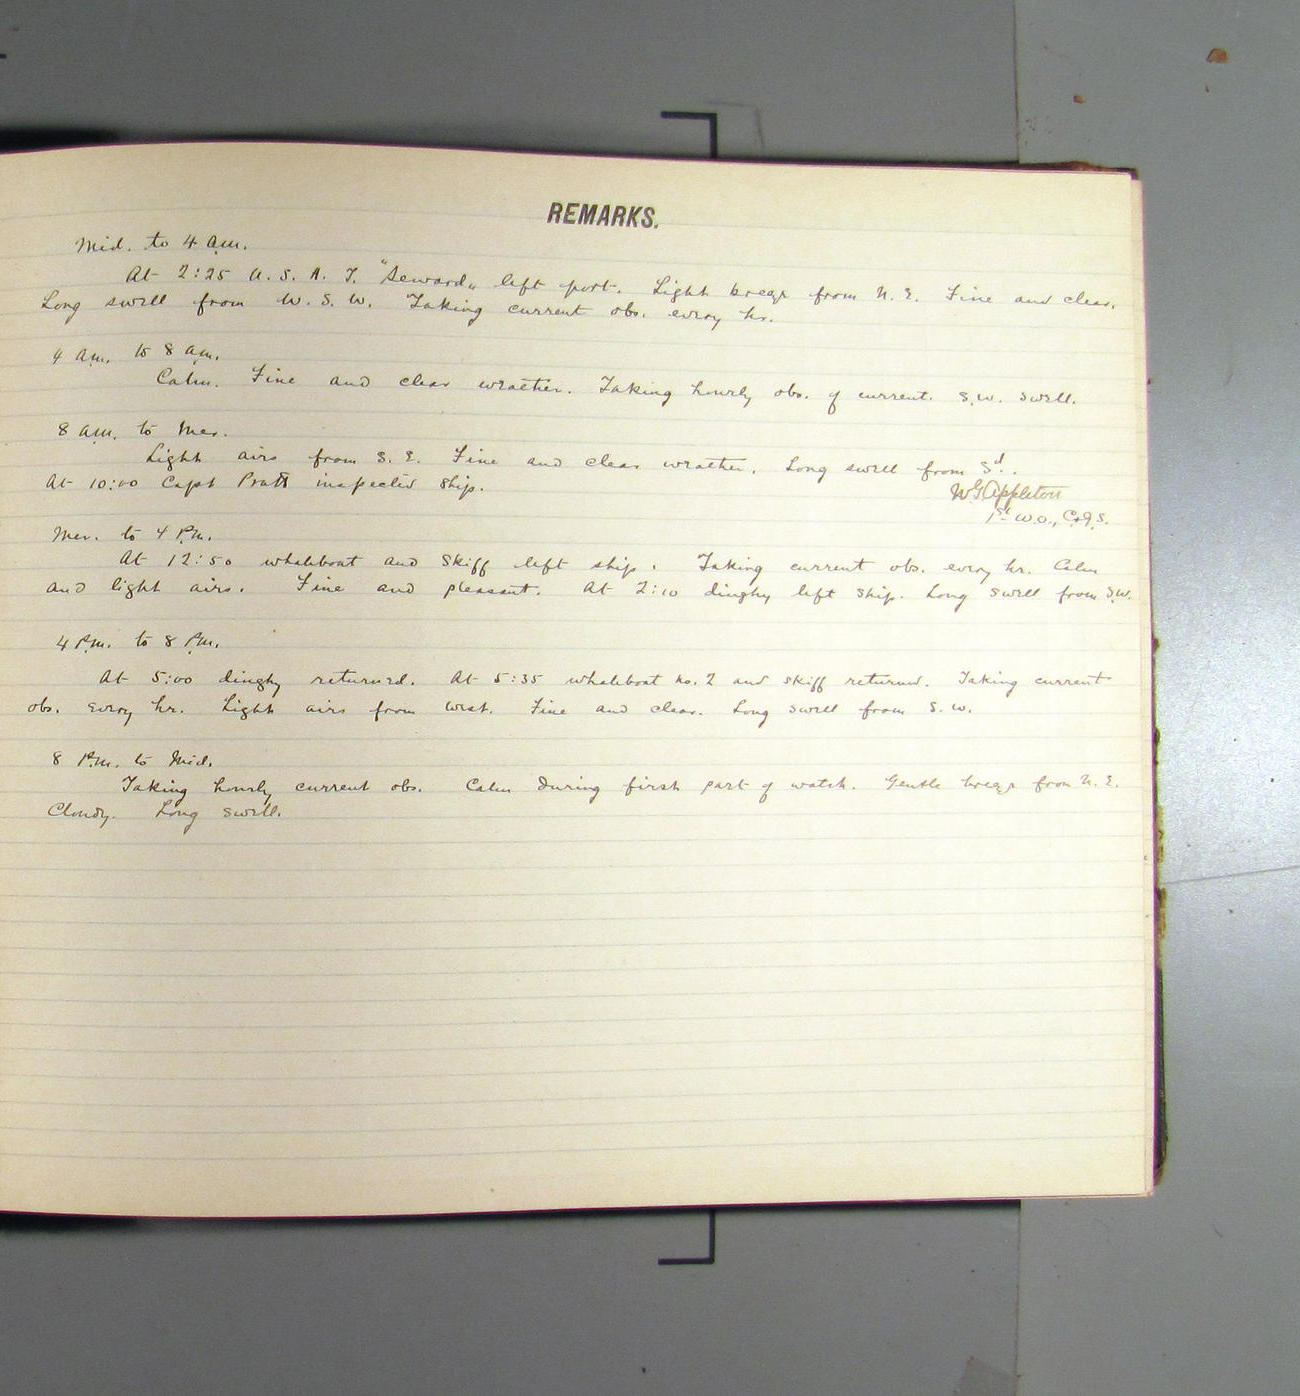 REMARKS.
Mid. to 4 a.m.
At 2:25 U. S. A. T. "Seward" left port. Light breeze from N. E. Fine and clear.
Long swell from W. S. W. Taking current obs. every hr.
4 a.m. to 8 a.m.
Calm. Fine and clear weather. Taking hourly obs. of current. S.W. swell.
8 a.m. to Mer.
Light airs from S. E. Fine and clear weather. Long swell from Sd.
At 10:00 Capt Pratt inspected ship.
W G Appleton
1st W.O., C.&G.S.
Mer. to 4 P.m.
At 12:50 whaleboat and skiff left ship. Taking current obs. every hr. Calm
and light airs. Fine and pleasant. At 2:10 dinghy left ship. Long swell from S.W.
4 P.m. to 8 P.m.
At 5:00 dinghy returned. At 5:35 whaleboat no. 2 and skiff returned. Taking current
obs. every hr. Light airs from West. Fine and clear. Long swell from S. W.
8 P.m. to Mid.
Taking hourly current obs. Calm during first part of watch. Gentle breeze from N. E.
Cloudy. Long swell.